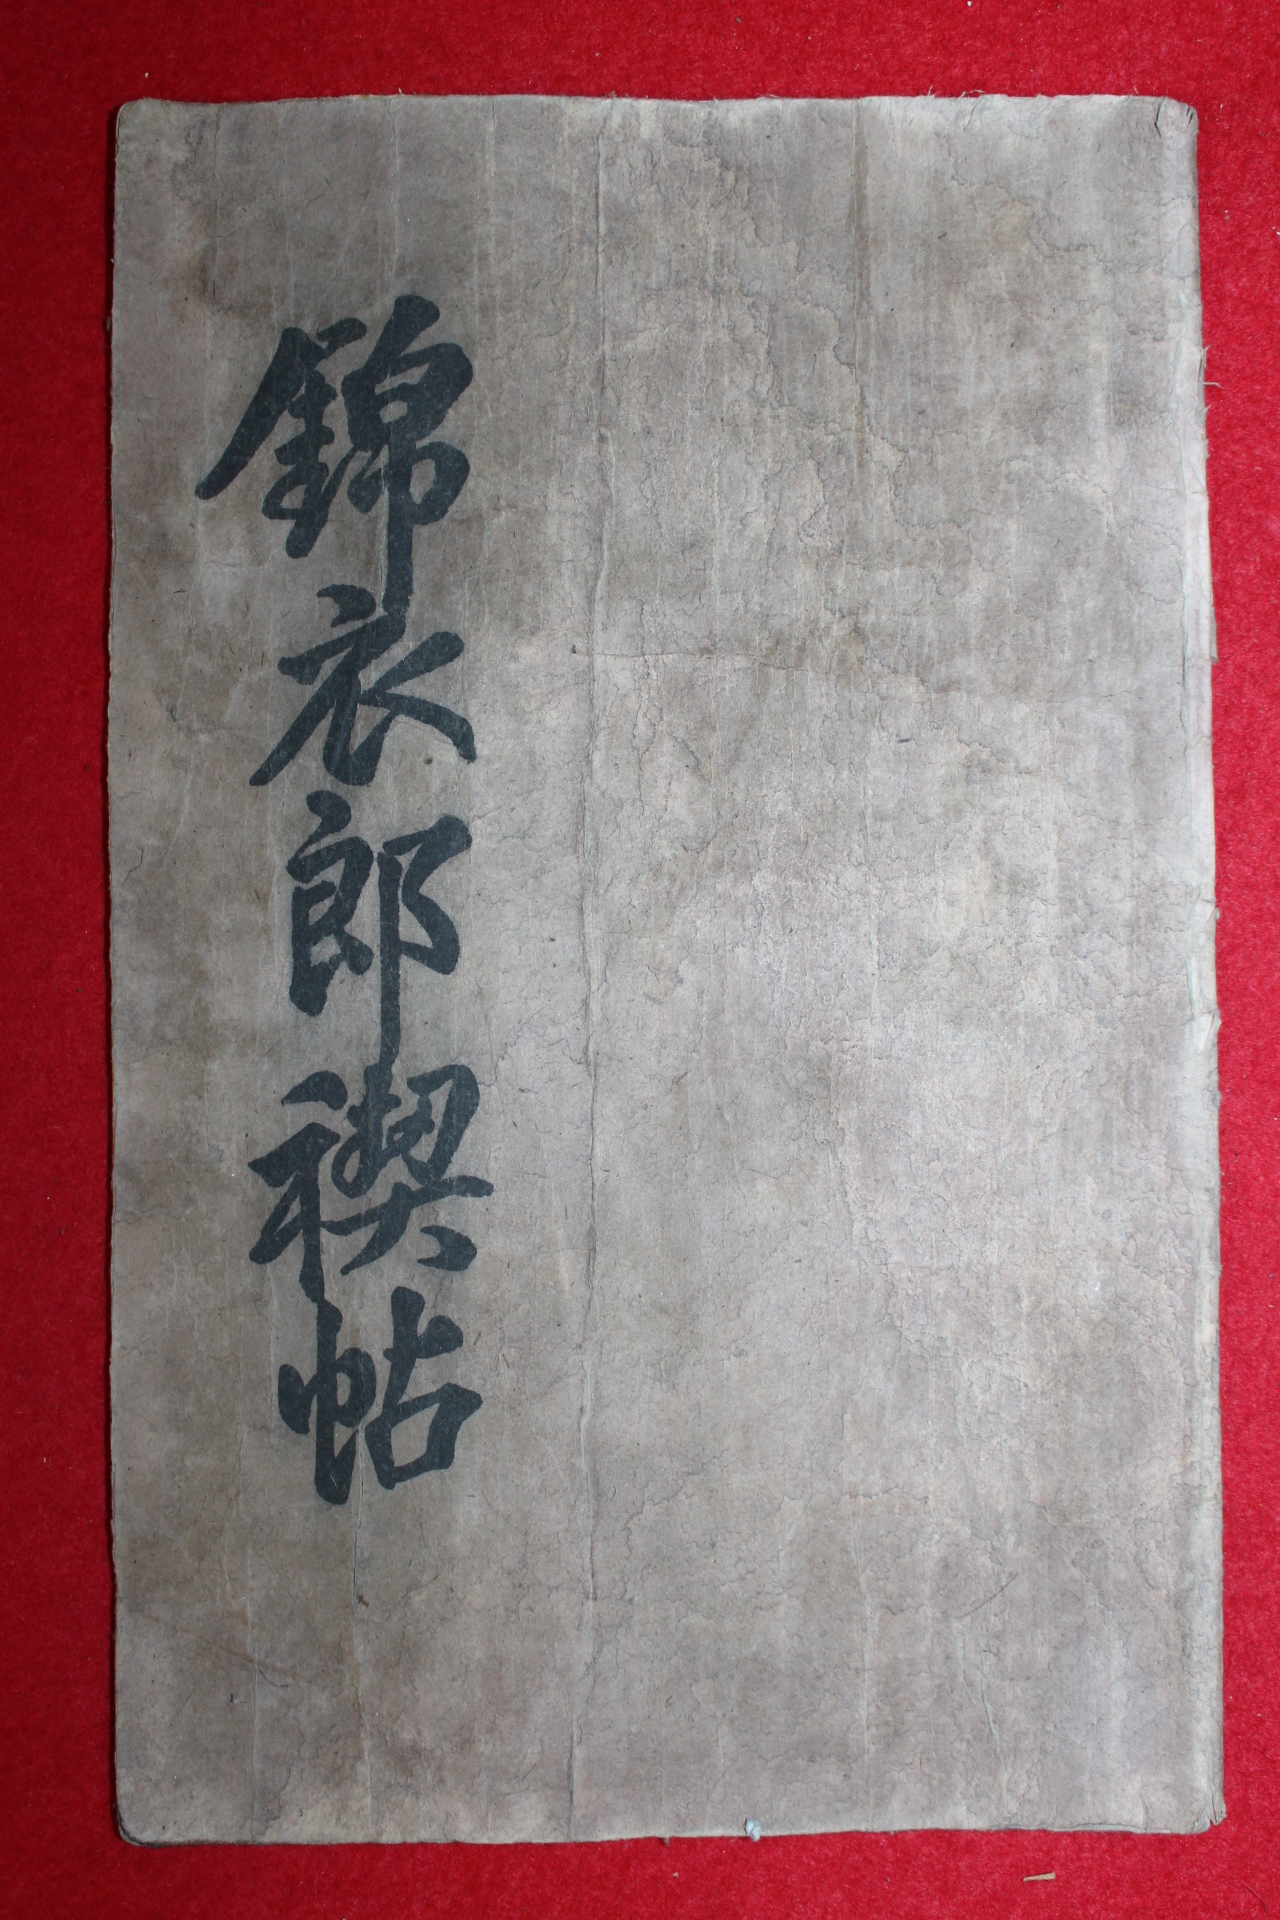 錦衣郎禊帖